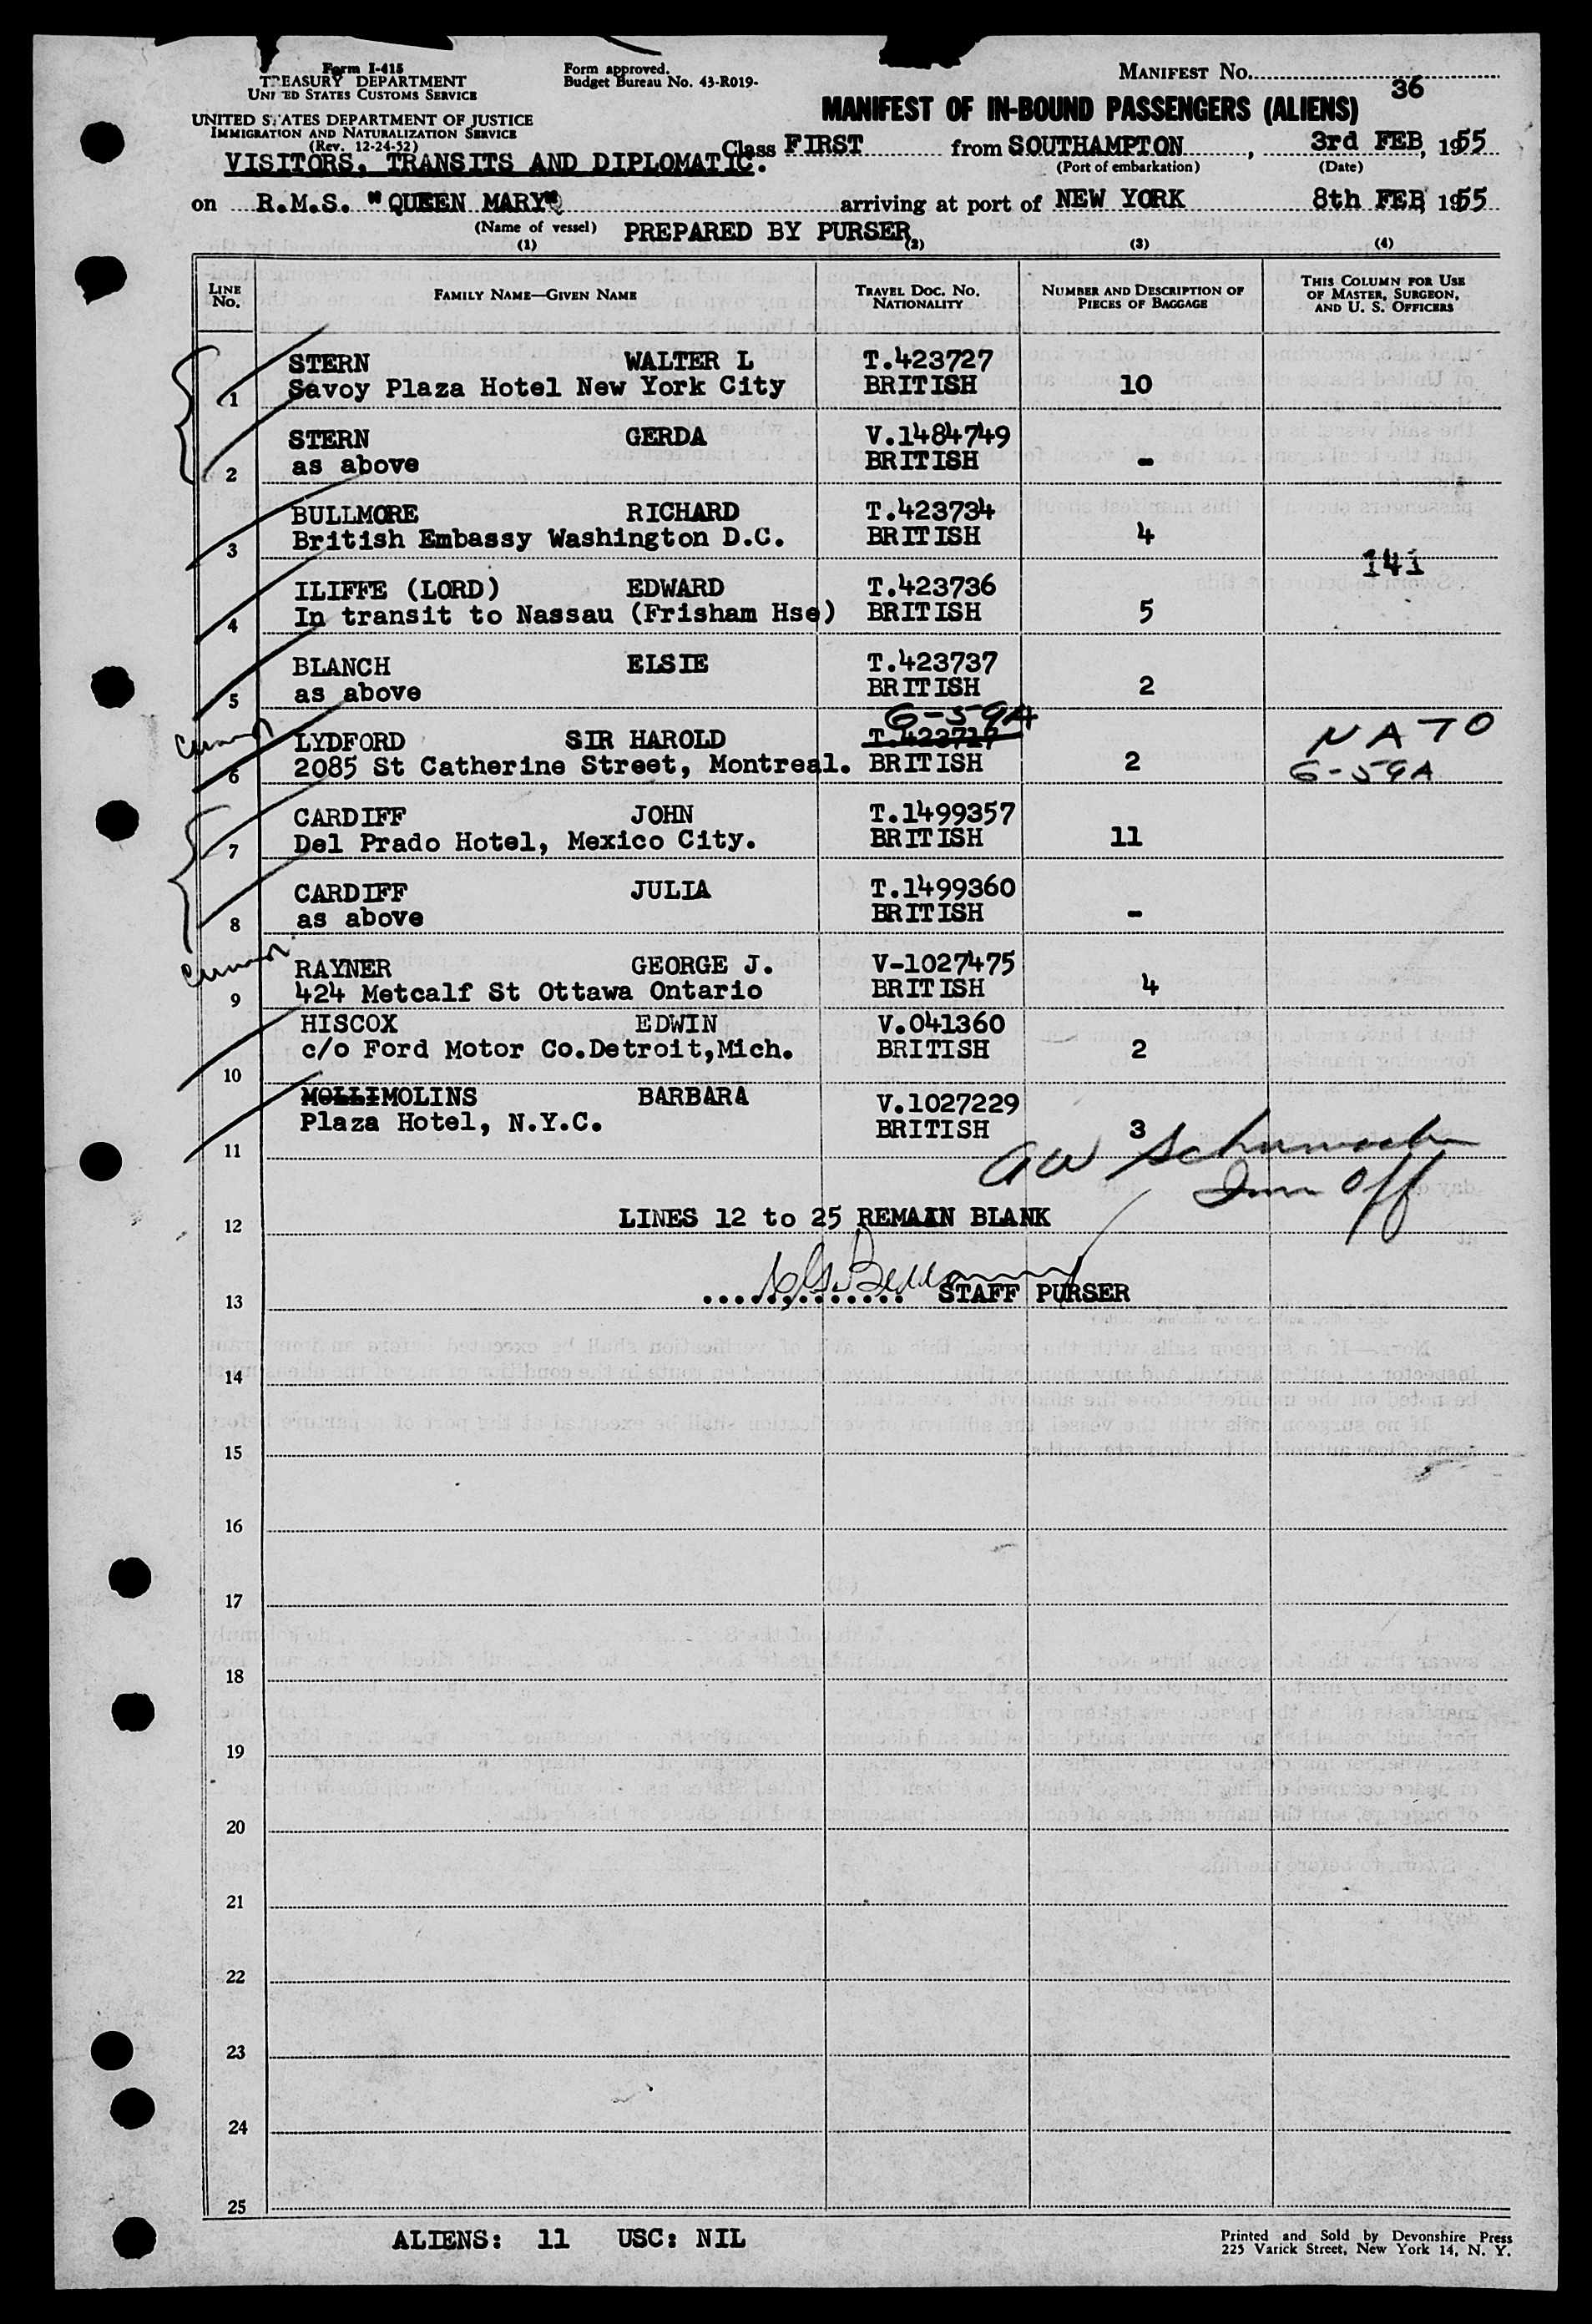 Form I-415
TREASURY DEPARTMENT
UNITED STATES CUSTOMS SERVICE
UNITED STATES DEPARTMENT OF JUSTICE
IMMIGRATION AND NATURALIZATION SERVICE
(Rev. 12-24-52)
Form approved.
Budget Bureau No. 43-R019-
MANIFEST No.
36
MANIFEST OF IN-BOUND PASSENGERS (ALIENS)
VISITORS, TRANSITS AND DIPLOMATIC.
Class FIRST from SOUTHAMPTON, 3rd FEB, 1955
(Port of embarkation) (Date)
on R.M.S. "QUEEN MARY" arriving at port of NEW YORK 8th FEB 1955
(Name of vessel) PREPARED BY PURSER
(1) (2) (3) (4)
LINE No. FAMILY NAME—GIVEN NAME TRAVEL DOC. NO. NATIONALITY NUMBER AND DESCRIPTION OF PIECES OF BAGGAGE THIS COLUMN FOR USE OF MASTER, SURGEON, AND U. S. OFFICERS
STERN WALTER L T.423727
1 Savoy Plaza Hotel New York City BRITISH 10
STERN GERDA V.1484749
2 as above BRITISH -
BULLMORE RICHARD T.423734
3 British Embassy Washington D.C. BRITISH 4
141
ILIFFE (LORD) EDWARD T.423736
4 In transit to Nassau (Frisham Hse) BRITISH 5
BLANCH ELSIE T.423737
5 as above BRITISH 2
G-59A
LYDFORD SIR HAROLD T.423719 NATO
6 2085 St Catherine Street, Montreal. BRITISH 2 G-59A
CARDIFF JOHN T.1499357
7 Del Prado Hotel, Mexico City. BRITISH 11
CARDIFF JULIA T.1499360
8 as above BRITISH -
RAYNER GEORGE J. V-1027475
9 424 Metcalf St Ottawa Ontario BRITISH 4
HISCOX EDWIN V.041360
10 c/o Ford Motor Co.Detroit,Mich. BRITISH 2
MOLLIMOLINS BARBARA V.1027229
11 Plaza Hotel, N.Y.C. BRITISH 3
Imm Off
12 LINES 12 to 25 REMAIN BLANK
13 STAFF PURSER
14
15
16
17
18
19
20
21
22
23
24
25
ALIENS: 11 USC: NIL
Printed and Sold by Devonshire Press
225 Varick Street, New York 14, N. Y.